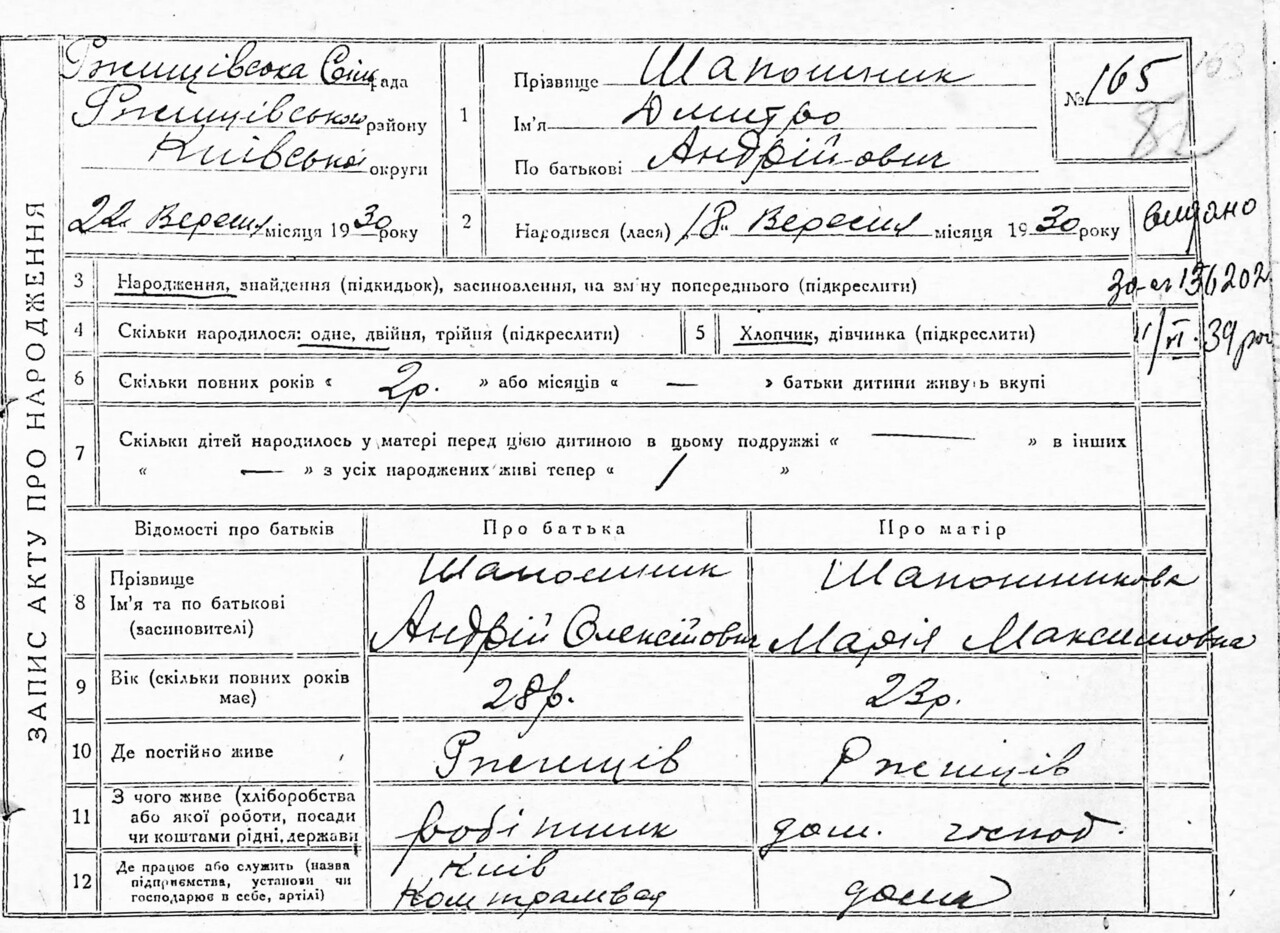 ЗАПИС АКТУ ПРО НАРОДЖЕННЯ
Ржищівська Сільрада
Ржищівського району
Київської округи
22 Вересня місяця 1930 року
1
Прізвище Шапошник
Ім'я Дмитро
По батькові Андрійович
№ 165
103
82
2
Народився (лася) „18" Вересня місяця 1930 року
видано
за № 136202
11/VI. 39 рок
3
Народження, знайдення (підкидьок), засиновлення, на зміну попереднього (підкреслити)
4
Скільки народилося: одне, двійня, трійня (підкреслити)
5
Хлопчик, дівчинка (підкреслити)
6
Скільки повних років « 2р. » або місяців « — » батьки дитини живуть вкупі
7
Скільки дітей народилось у матері перед цією дитиною в цьому подружжі « — » в інших
« — » з усіх народжених живі тепер « 1 »
Відомості про батьків
Про батька
Про матір
8
Прізвище
Ім'я та по батькові
(засиновителі)
Шапошник
Андрій Олексійович
Шапошникова
Марія Максимовна
9
Вік (скільки повних років
має)
28р.
23р.
10
Де постійно живе
Ржищів
Ржищів
11
З чого живе (хліборобства
або якої роботи, посади
чи коштами рідні, держави
робітник
дом. господ.
12
Де працює або служить (назва
підприємства, установи чи
господарює в себе, артілі)
Київ
Комтрамвая
дома